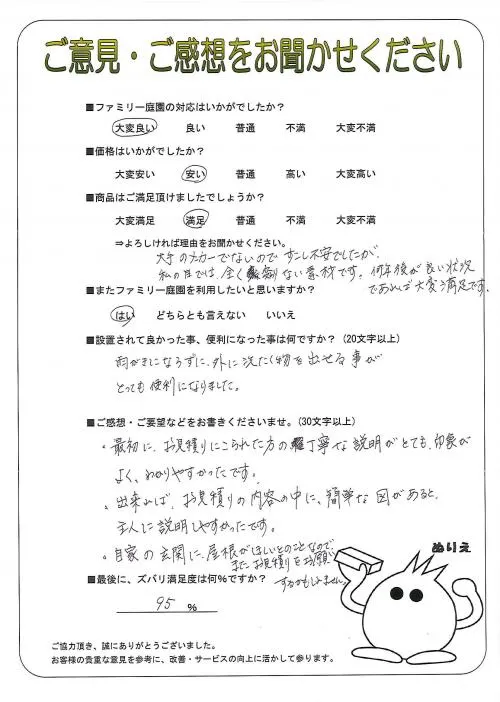 ご意見・ご感想をお聞かせください
■ファミリー庭園の対応はいかがでしたか？
大変良い 良い 普通 不満 大変不満
■価格はいかがでしたか？
大変安い 安い 普通 高い 大変高い
■商品はご満足頂けましたでしょうか？
大変満足 満足 普通 不満 大変不満
⇒よろしければ理由をお聞かせください。
大手のメーカーでないので すこし不安でしたが、
私の目では、全く 劣らない素材です。何年後が良い状況
であれば大変満足です。
■またファミリー庭園を利用したいと思いますか？
はい どちらとも言えない いいえ
■設置されて良かった事、便利になった事は何ですか？（20文字以上）
雨がきにならずに、外に洗たく物を出せる事が
とっても便利になりました。
■ご感想・ご要望などをお書きくださいませ。（30文字以上）
・最初に、お見積りにこられた方の丁寧な説明がとても、印象が
よく、わかりやすかったです。
・出来れば、お見積りの内容の中に、簡単な図があると、
主人に説明しやすかったです。
・自家の玄関に、屋根がほしいとのことなので
また お見積りをお願い
するかもしれません。
■最後に、ズバリ満足度は何％ですか？
95 %
ぬりえ
ご協力頂き、誠にありがとうございました。
お客様の貴重な意見を参考に、改善・サービスの向上に活かして参ります。